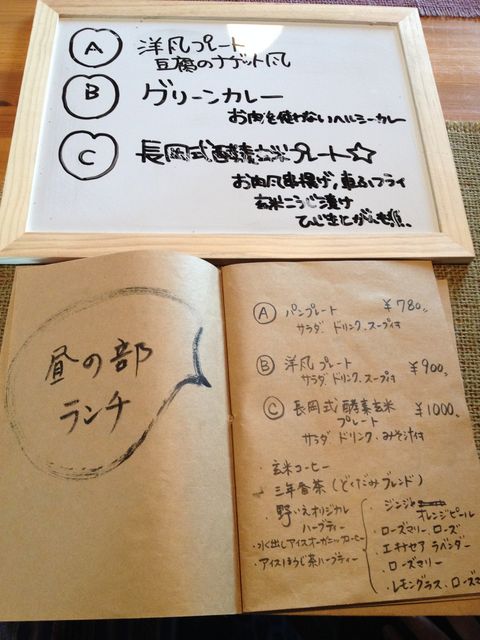 A 洋風プレート
豆腐のナゲット風
B グリーンカレー
お肉を使わないヘルシーカレー
C 長岡式酵素玄米プレート☆
お肉風串揚げ、車ふフライ
玄米こうじ漬け
ひじきとがんも
昼の部
ランチ
A パンプレート ¥780.
サラダ ドリンク、スープ付
B 洋風プレート ¥900.
サラダ ドリンク、スープ付
C 長岡式酵素玄米 ¥1000.
プレート
サラダ ドリンク、みそ汁付
・玄米コーヒー
・三年番茶(どくだみブレンド)
・野いえオリジカル
ハーブティー
・水出しアイスオーガニックコーヒー
・アイスほうじ茶ハーブティー
・ジンジャ
オレンジピール
・ローズマリー、ローズ
・エキナセア ラベンダー
・ローズマリー
・レモングラス、ローズマ